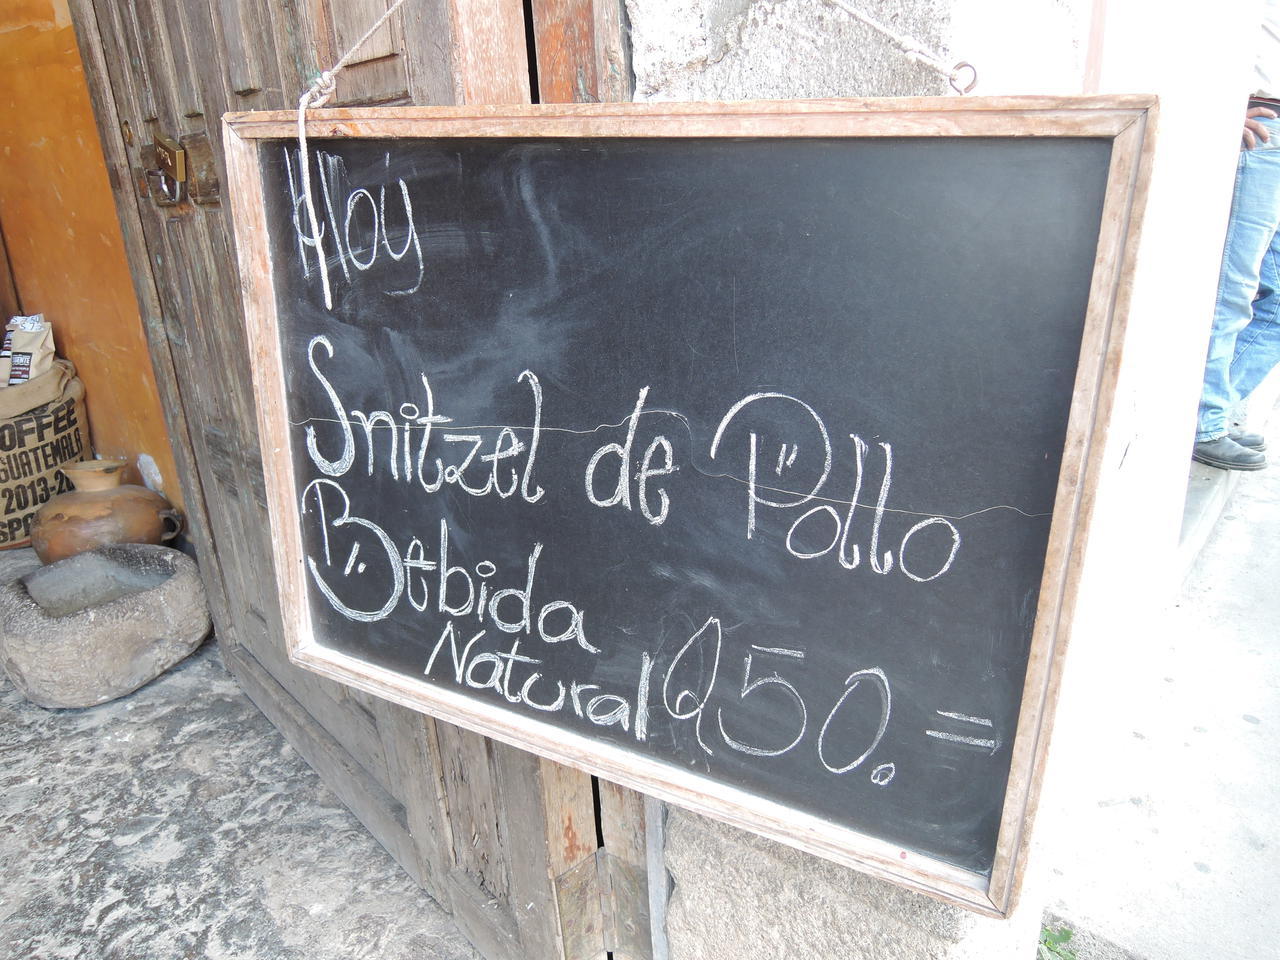 Hoy
Snitzel de Pollo
Bebida
Natural Q50.=
OFFEE
GUATEMALA
2013-20
SPO